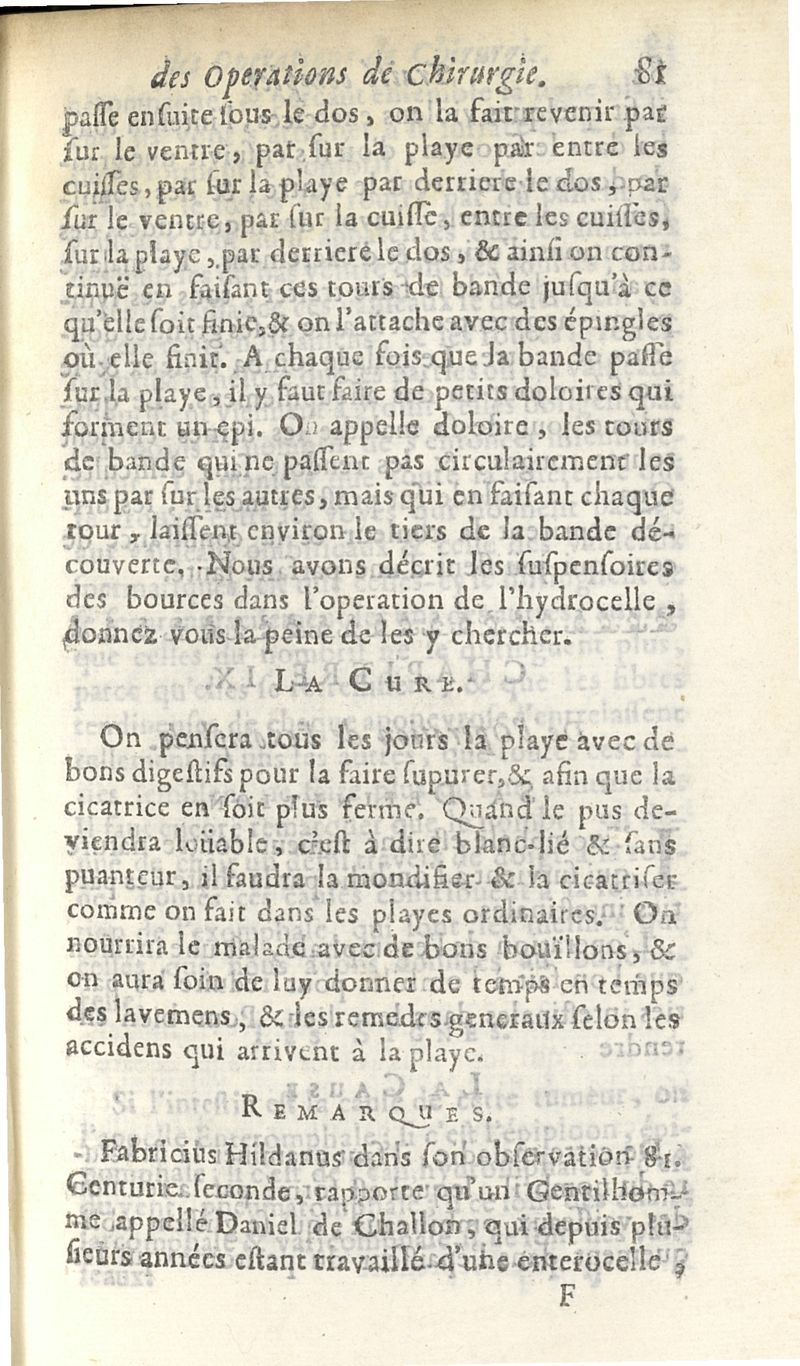 des Operations de Chirurgie. 81
passe ensuite sous le dos, on la fait revenir par
sur le ventre, par sur la playe par entre les
cuisses, par sur la playe par derriere le dos, par
sur le ventre, par sur la cuisse, entre les cuisses,
sur la playe, par derriere le dos, & ainsi on con-
tinuë en faisant ces tours de bande jusqu'à ce
qu'elle soit finie, & on l'attache avec des épingles
où elle finit. A chaque fois que la bande passe
sur la playe, il y faut faire de petits doloires qui
forment un epi. On appelle doloire, les tours
de bande qui ne passent pas circulairement les
uns par sur les autres, mais qui en faisant chaque
tour, laissent environ le tiers de la bande dé-
couverte. Nous avons décrit les suspensoires
des bources dans l'operation de l'hydrocelle,
donnez vous la peine de les y chercher.
LA CURE.
On pensera tous les jours la playe avec de
bons digestifs pour la faire supurer, & afin que la
cicatrice en soit plus ferme. Quand le pus de-
viendra loüable, c'est à dire blanc-lié & sans
puanteur, il faudra la mondifier & la cicatriser
comme on fait dans les playes ordinaires. On
nourrira le malade avec de bons bouïllons, &
on aura soin de luy donner de temps en temps
des lavemens, & les remedes generaux selon les
accidens qui arrivent à la playe.
REMARQUES.
Fabricius Hildanus dans son observation 81.
Centurie seconde, rapporte qu'un Gentilhom-
me appellé Daniel de Challon, qui depuis plu-
sieurs années estant travaillé d'une enterocelle,
F